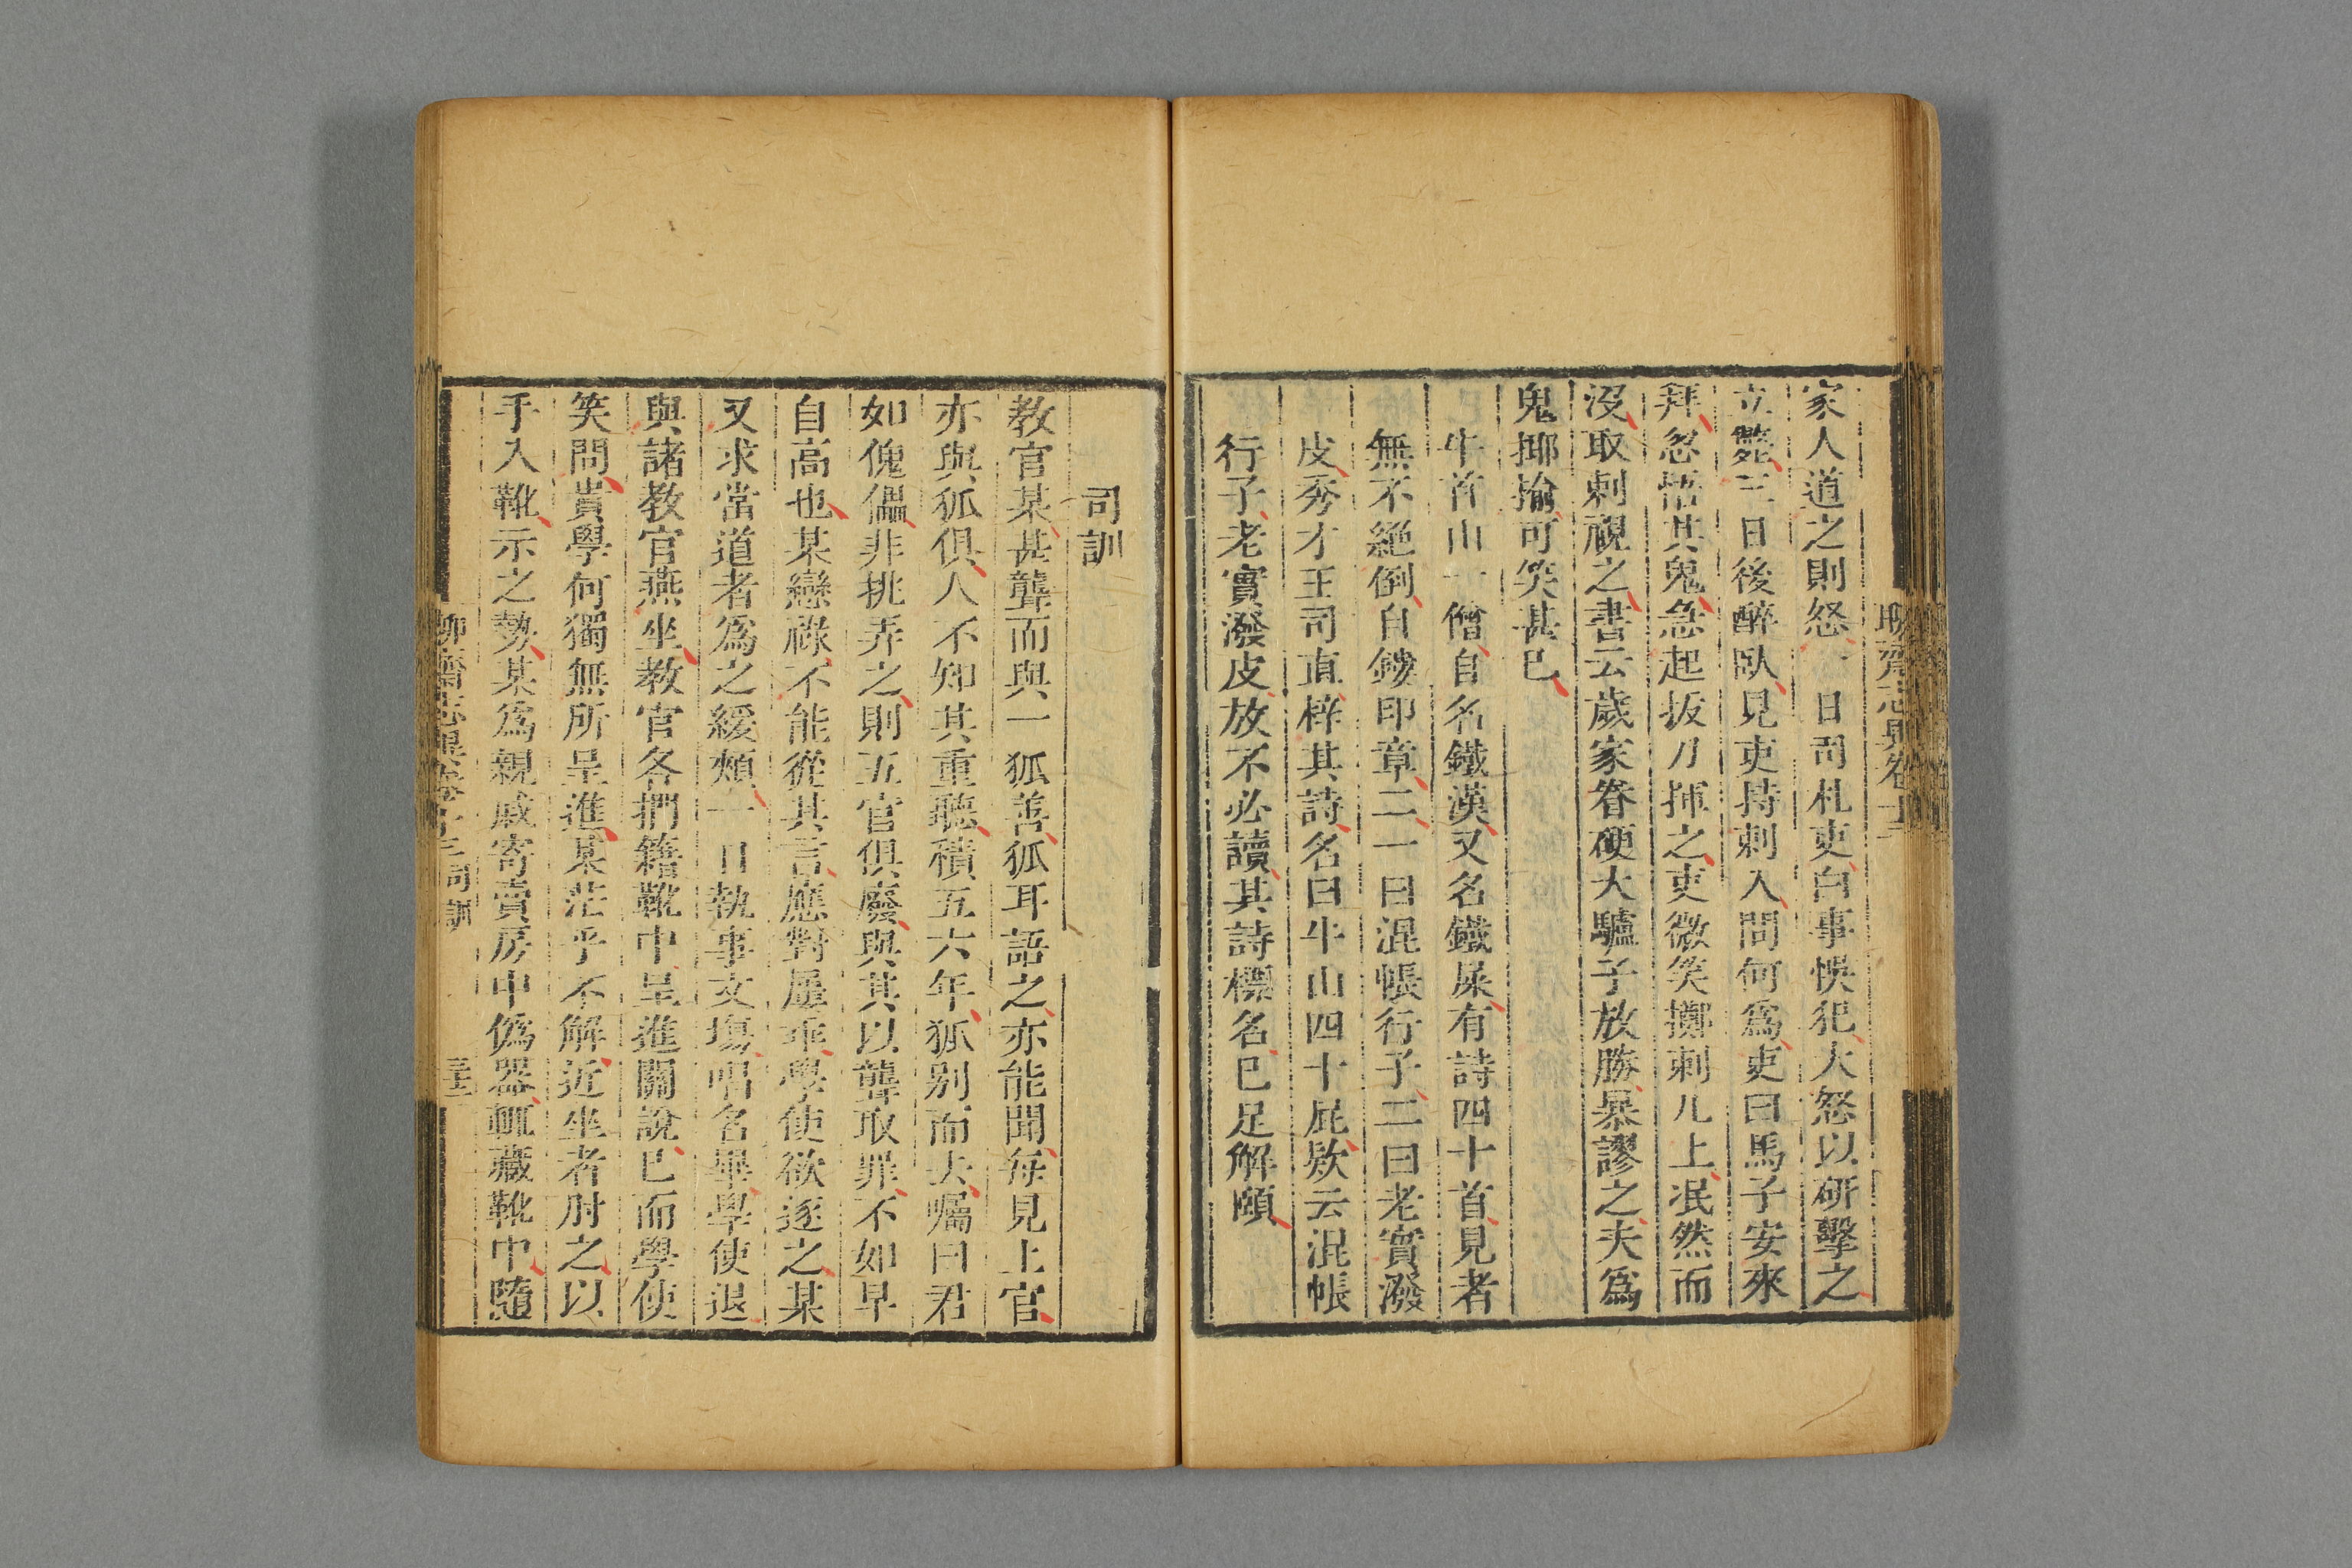 聊齋志異卷十三
家人道之則怒一日司札吏白事悞犯大怒以研擊之
立斃三日後醉臥見吏持刺入問何爲吏曰馬子安來
拜忽悟其鬼急起拔刀揮之吏微笑擲刺几上泯然而
沒取刺視之書云歲家眷硬大驢子放勝暴謬之夫爲
鬼揶揄可笑甚已
牛首山一僧自名鐵漢又名鐵屎有詩四十首見者
無不絕倒自鏤印章二一曰混帳行子二曰老實潑
皮秀才王司直梓其詩名曰牛山四十屁欵云混帳
行子老實潑皮放不必讀其詩標名已足解頤
司訓
教官某甚聾而與一狐善狐耳語之亦能聞每見上官
亦與狐俱人不知其重聽積五六年狐别而去囑曰君
如傀儡非挑弄之則五官俱廢與其以聾取罪不如早
自高也某戀祿不能從其言應對屢乖學使欲逐之某
又求當道者爲之緩頰一日執事文塲唱名畢學使退
與諸教官燕坐教官各捫籍靴中呈進關說已而學使
笑問貴學何獨無所呈進某茫乎不解近坐者肘之以
手入靴示之勢某爲親戚寄賣房中僞器輒藏靴中隨
聊齋志異卷十三司訓